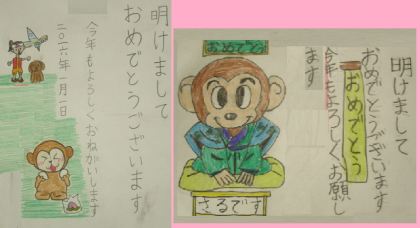 明けまして
おめでとうございます
今年もよろしくおねがいします
二〇一六年一月一日
明けまして
おめでとうございます
おめでとう
今年もよろしくお願し
ます
おめでとう
さるです